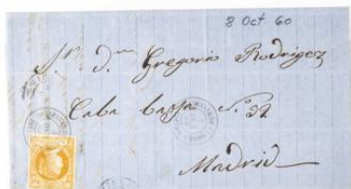 8 Oct 60
Sr. Dn. Gregorio Rodrigez
Caba bassa No. 22
Madrid